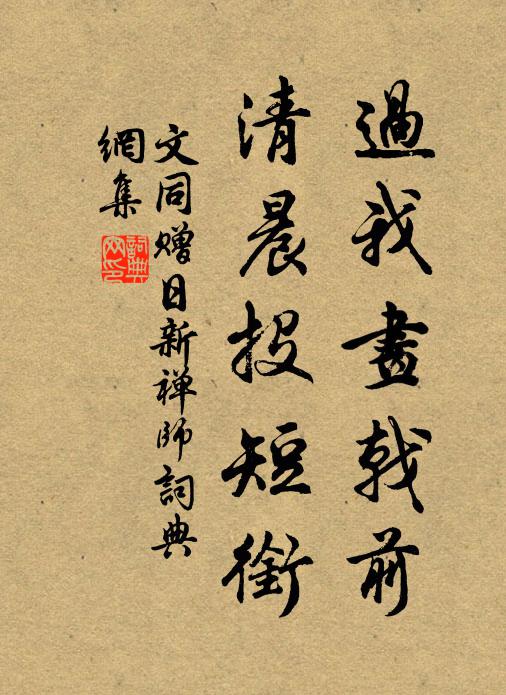 過我畫戟前
清晨投短銜
文同贈日新禅師詞典
網集
詞典網印